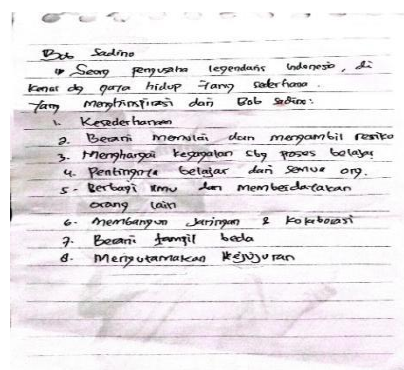 Bob Sadino
Seorg pengusaha legendaris Indonesia, di
kenal dg gaya hidup yang sederhana.
yang menginspirasi dari Bob Sadino:
1. Kesederhanaan
2. Berani memulai dan mengambil resiko
3. Menghargai kegagalan sbg proses belajar
4. Pentingnya belajar dari semua org.
5. Berbagi ilmu dan memberdayakan
orang lain
6. Membangun Jaringan & kolaborasi
7. Berani tampil beda
8. Mengutamakan kejujuran